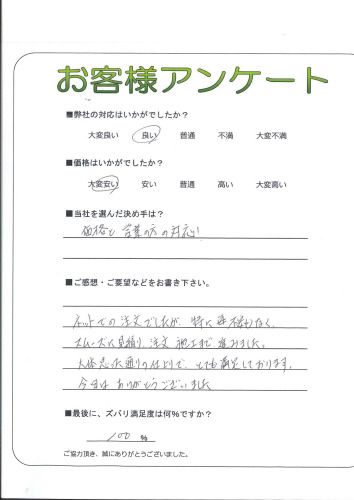 お客様アンケート
■弊社の対応はいかがでしたか？
大変良い 良い 普通 不満 大変不満
■価格はいかがでしたか？
大変安い 安い 普通 高い 大変高い
■当社を選んだ決め手は？
価格と営業の方の対応
■ご感想・ご要望などをお書き下さい。
ネットでの注文でしたが、特に
スムーズに見積り、注文、施工まで進みました。
大体思った通りの仕上りで、とても満足しております。
今日は ありがとうございました
■最後に、ズバリ満足度は何%ですか？
100 %
ご協力頂き、誠にありがとうございました。